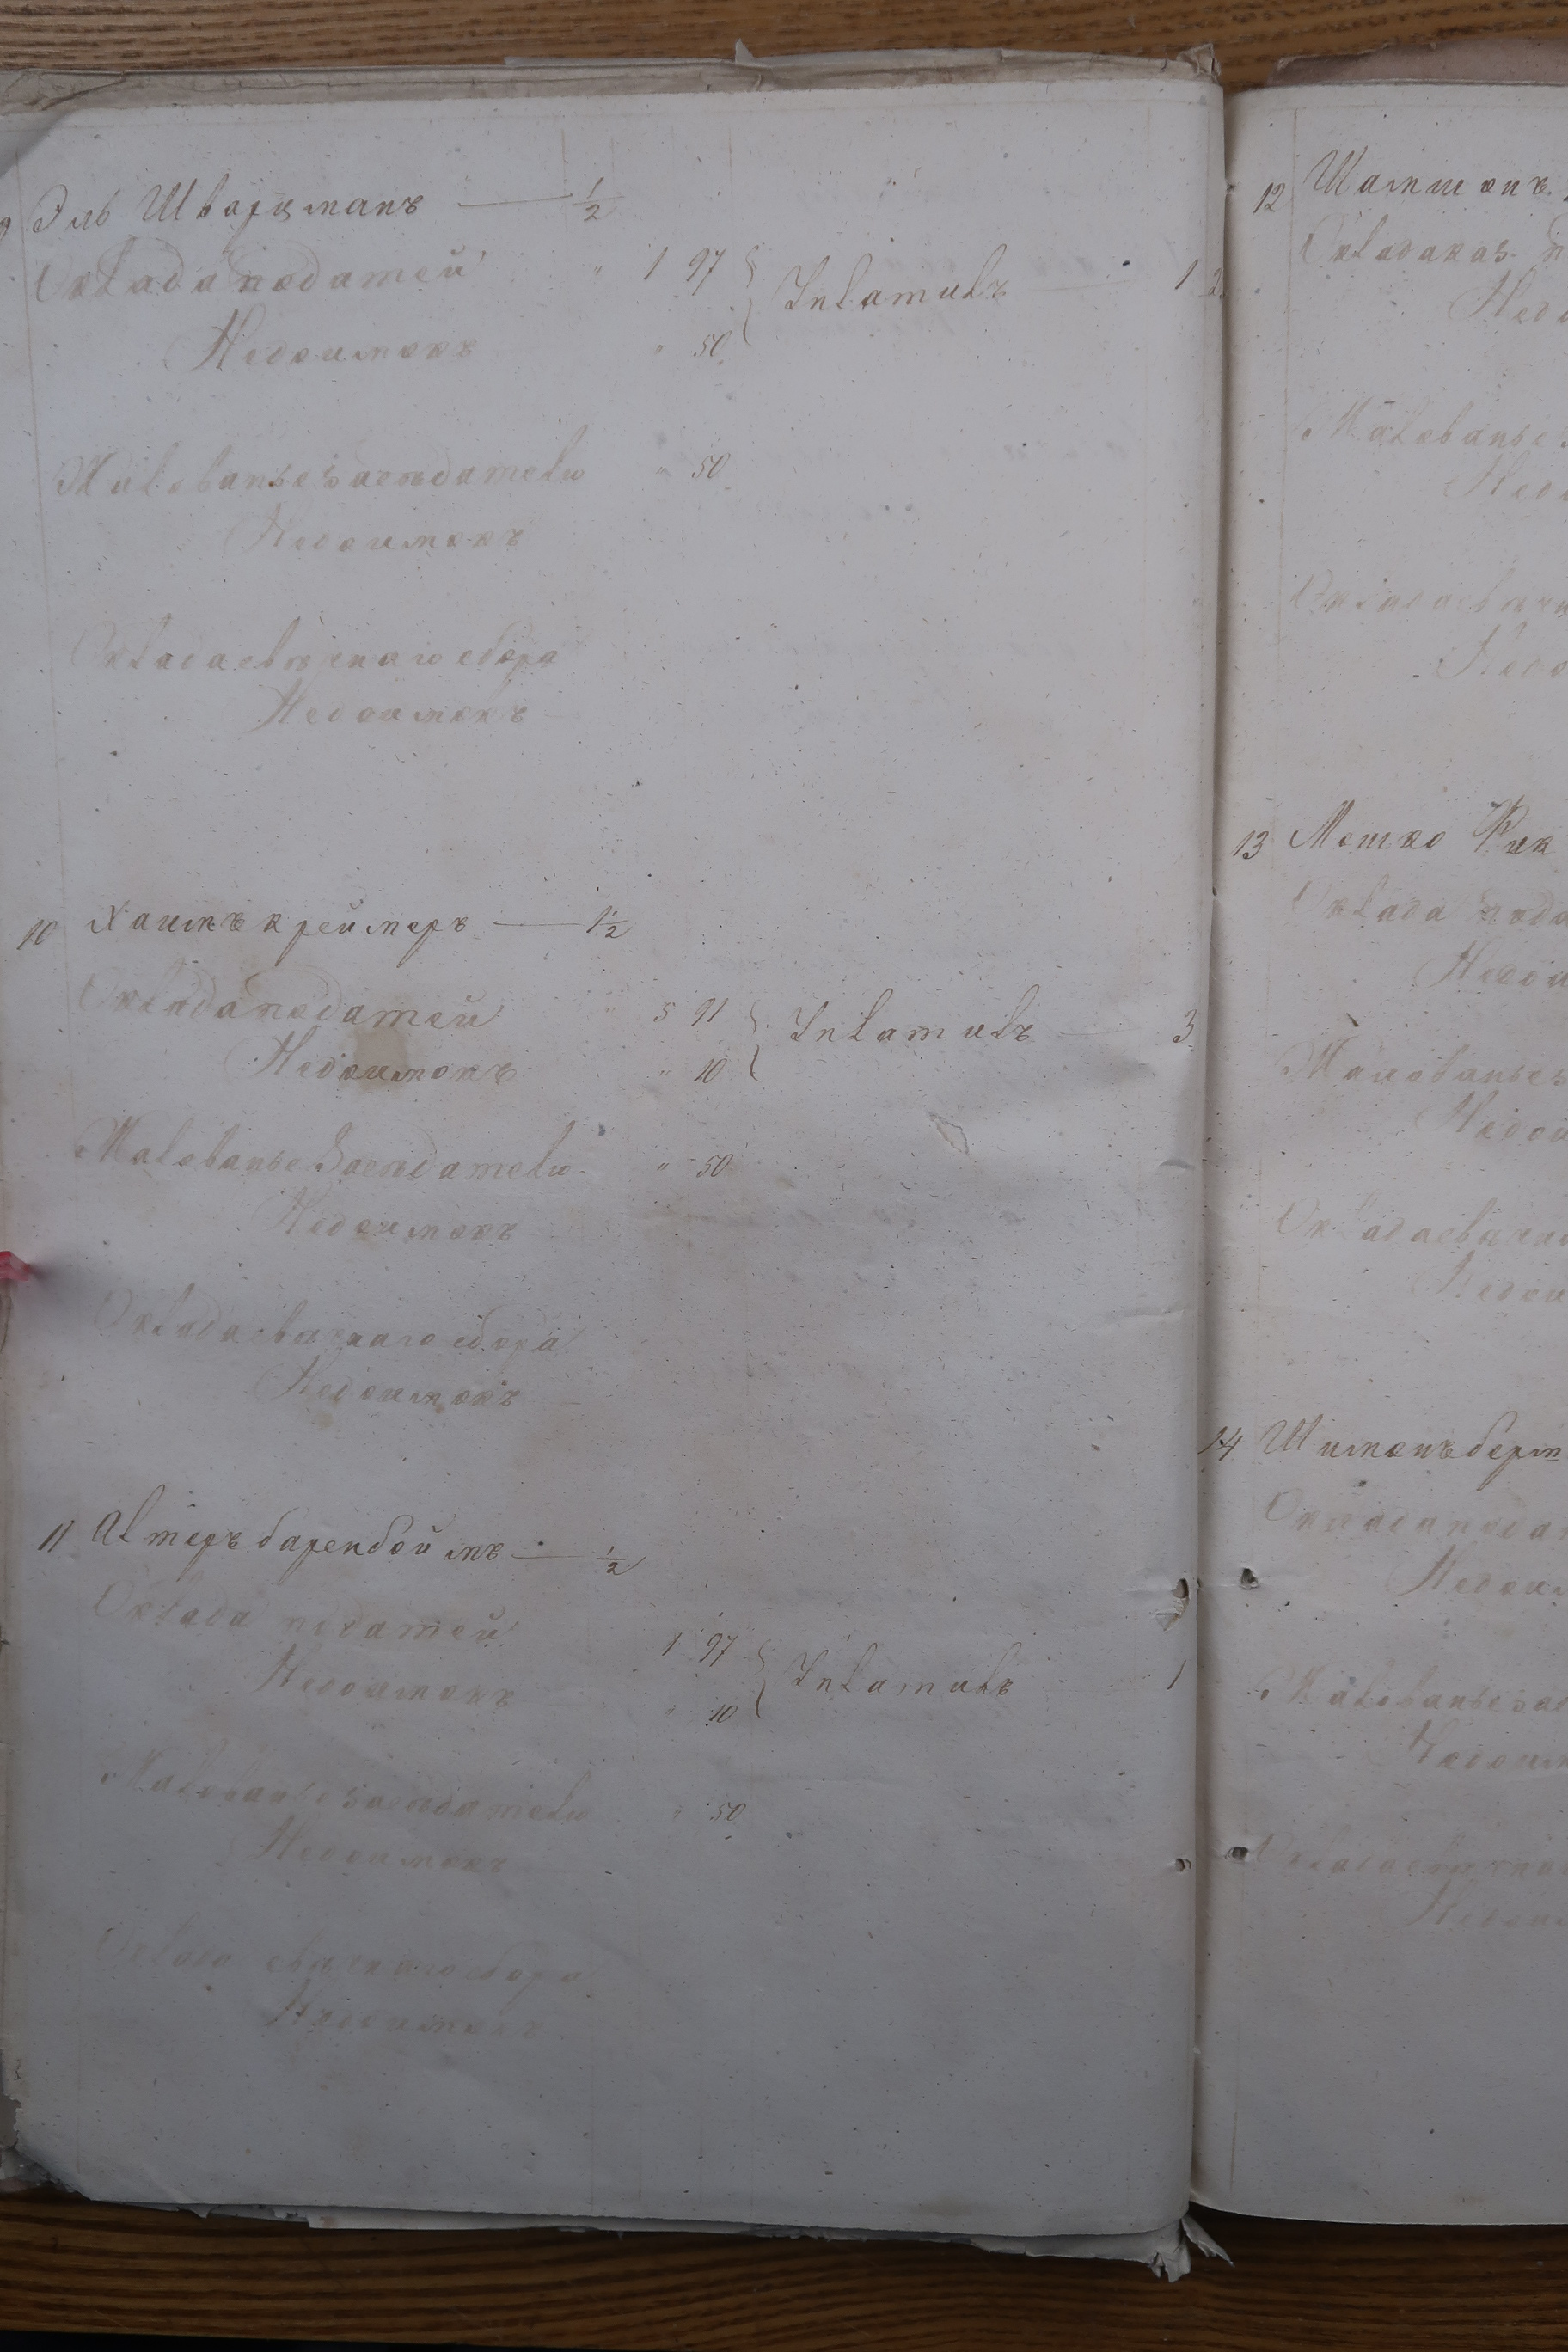 9 Эль Шварцманъ — 1/2
Оклада податей " 1 97 } Уплатилъ — 1 2
Недоимокъ " 50
Жалованье засядателю " 50
Недоимокъ
Оклада свѣчнаго сбора
Недоимокъ
10 Хаимъ креймеръ — 1 1/2
Оклада податей " 5 91 } Уплатилъ — 3
Недоимокъ " 10
Жалованье Засѣдателю " 50
Недоимокъ
Оклада свѣчнаго сбора
Недоимокъ
11 Алтеръ баренбоймъ — 1/2
Оклада податей 1 97 } Уплатилъ 1
Недоимокъ " 10
Жалованье засѣдателю " 50
Недоимокъ
Оклада свѣчнаго сбора
Недоимокъ
12 Шамшонъ
Оклада каз. п
Недо
Жалованье з
Недо
Оклада свѣчн
Недо
13 Мошко Фик
Оклада пода
Недои
Жалованье з
Недои
Оклада свѣчно
Недои
14 Шимонъ берм
Оклада пода
Недоим
Жалованье зас
Недоим
Оклада свѣчна
Недоим